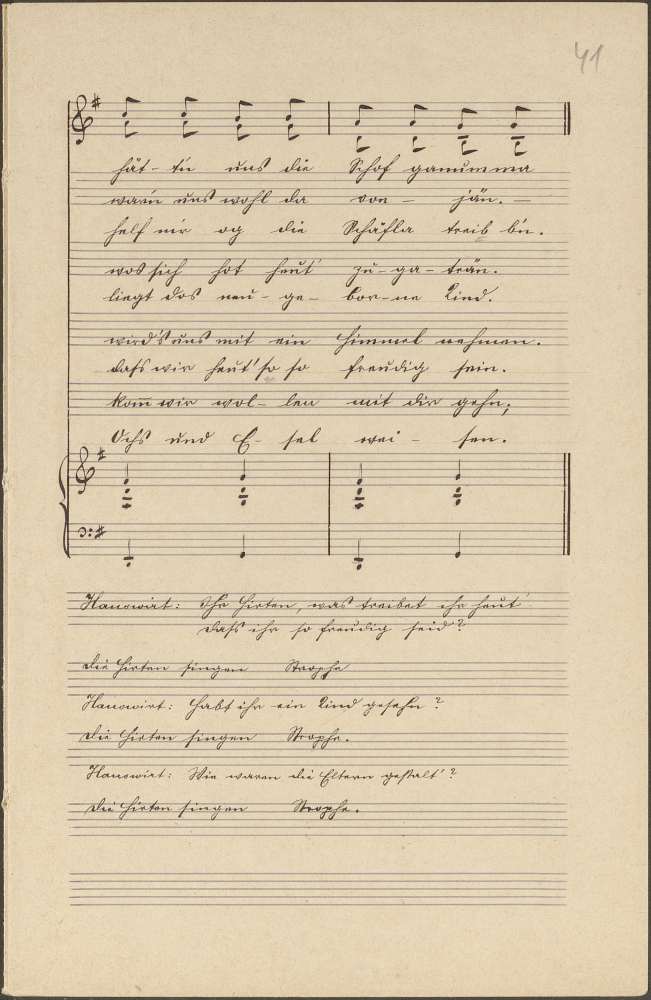 41
hät- tn uns die Schof genumma
warn uns wohl da von - jän. -
helf mir og die Schäfla treib bn.
wos sich hot heut' zu-ge-trän.
liegt das neu- ge- bor-ne Kind.
wird's uns mit ein Himmel nehmen.
dass wir heut' so so freudig sein.
Komm wir wol- len mit dir gehn;
Ochs und E- sel wei - sen.
Hauswirt: Ihr Hirten, was treibet ihr heut'
dass ihr so freudig seid?
Die Hirten singen Strophe
Hauswirt: Habt ihr ein Kind gesehn?
Die Hirten singen Strophe.
Hauswirt: Wie waren die Eltern gestalt'?
Die Hirten singen Strophe.